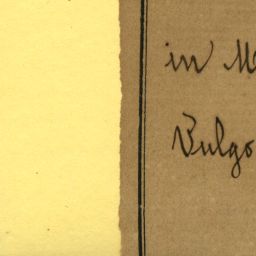 in M
Vulgo